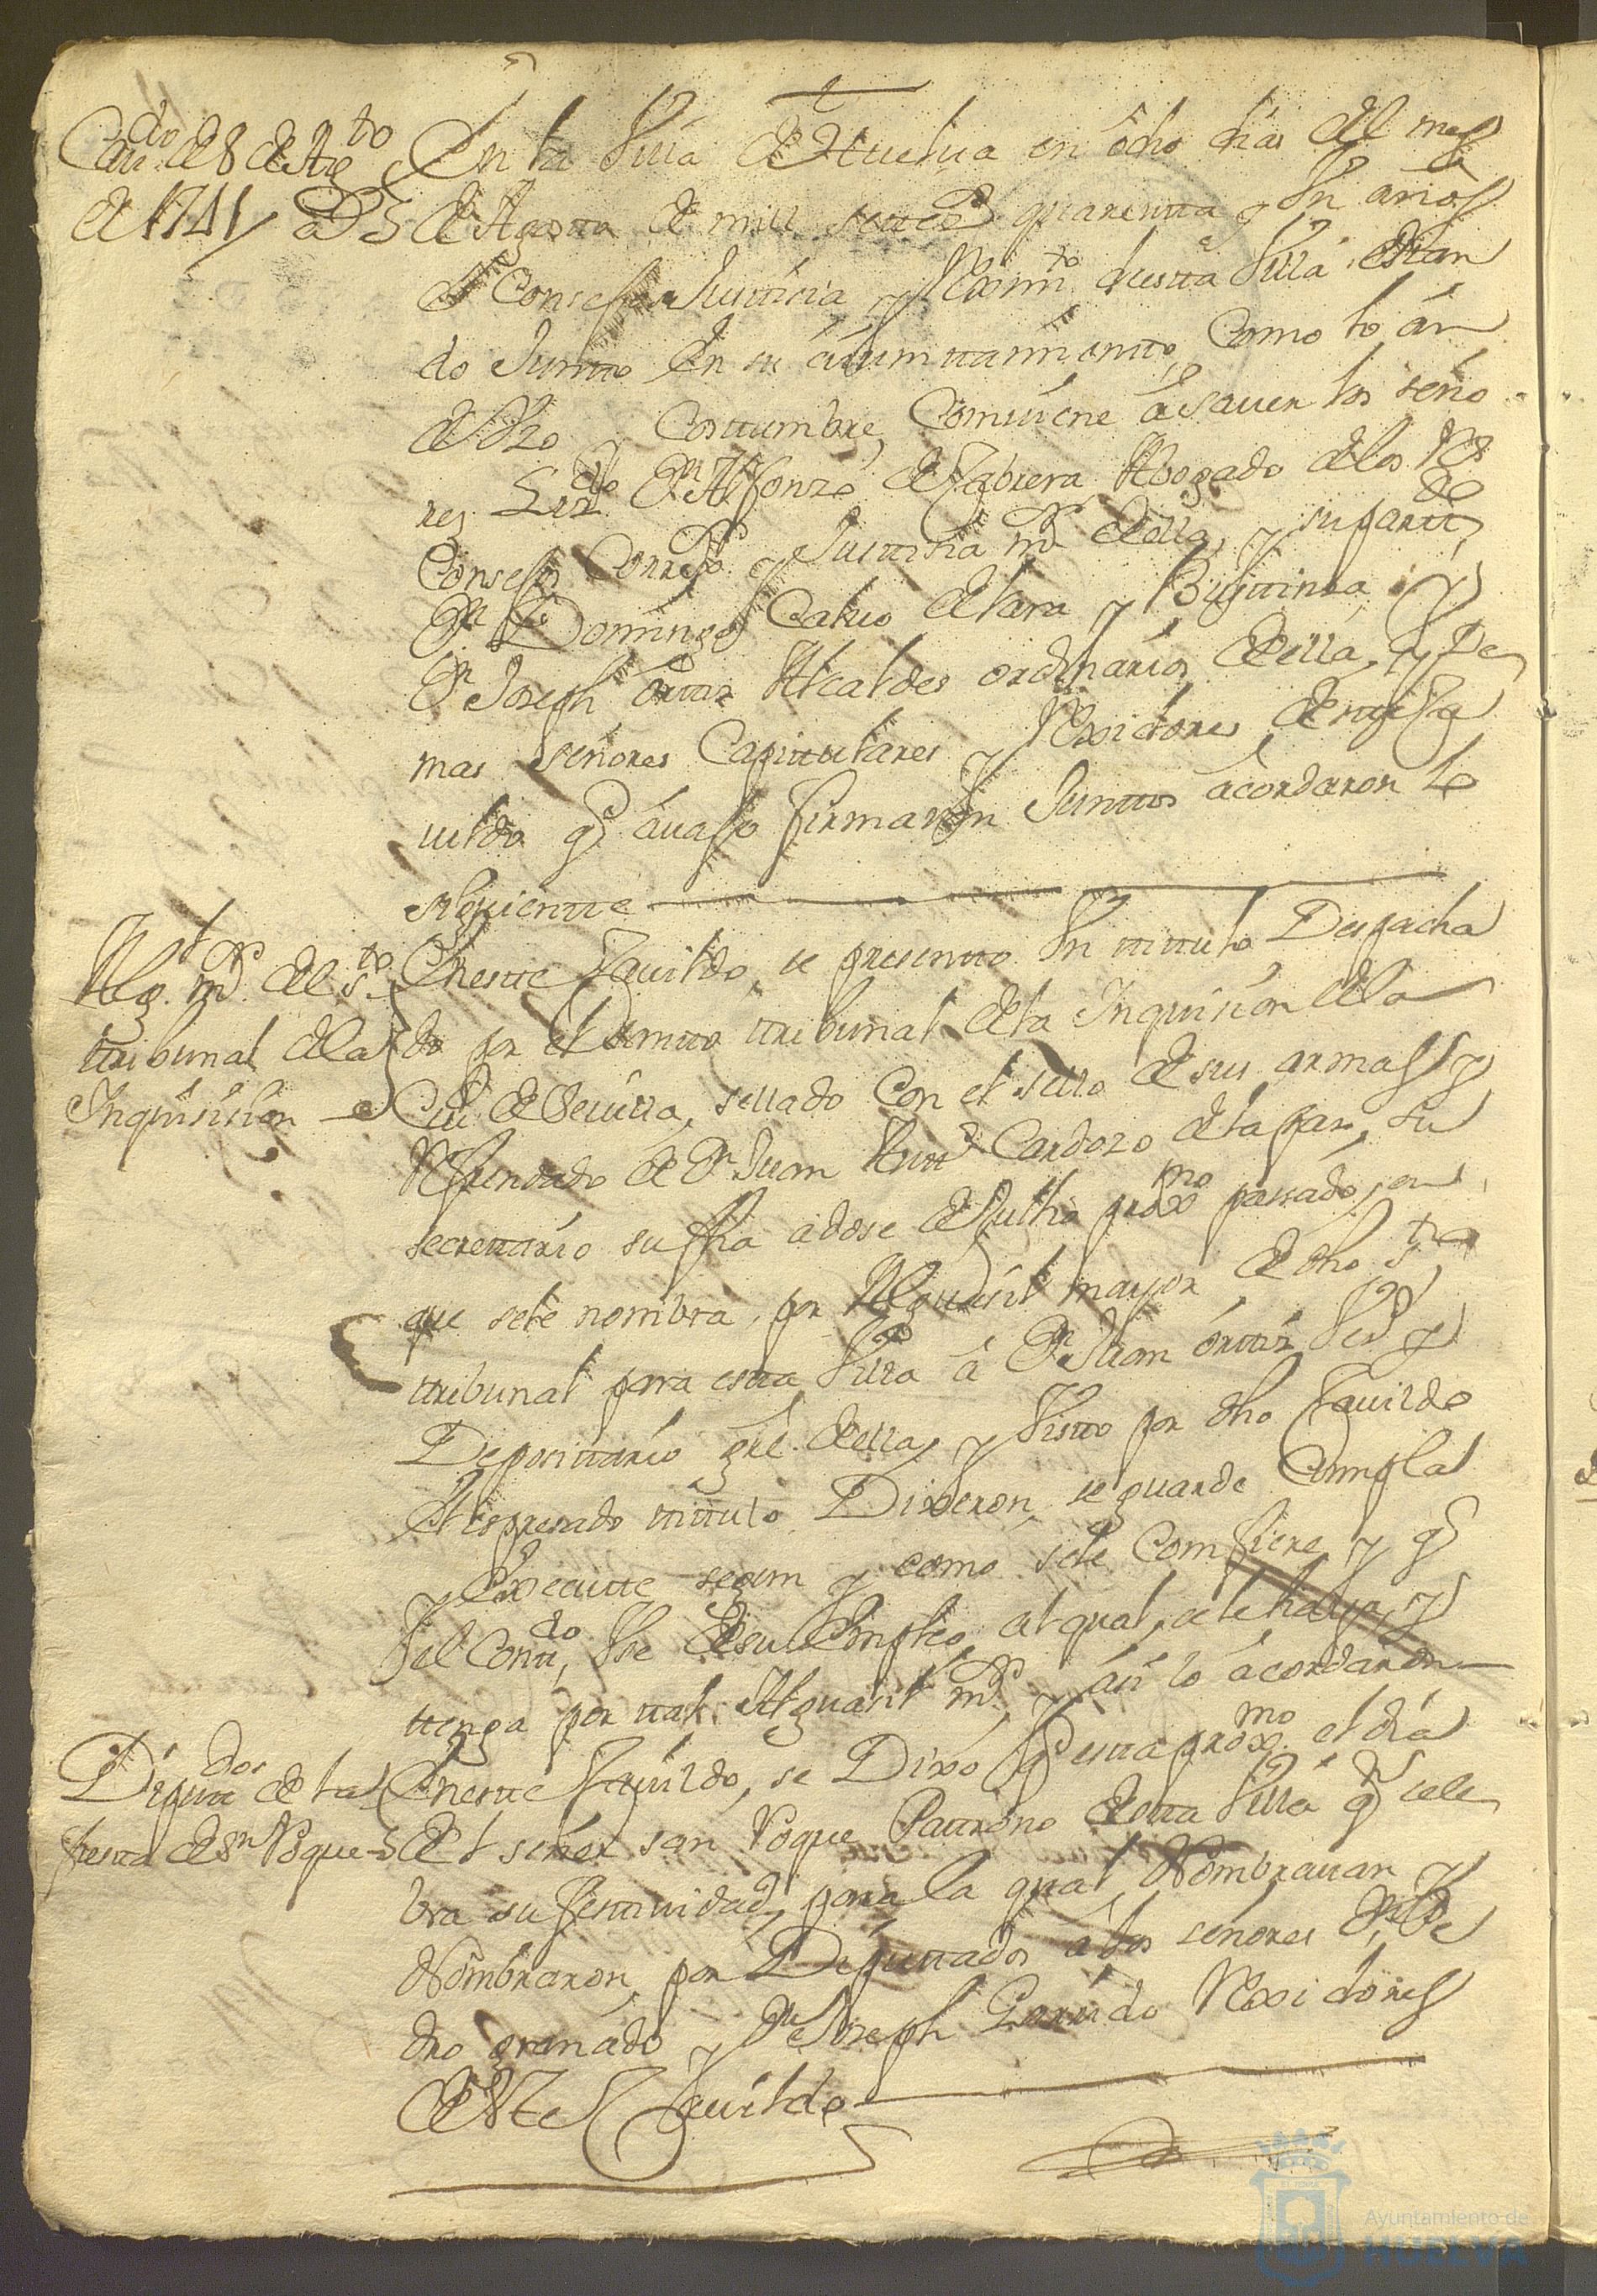 Cavdo de 8 de Agto
de 1741
En la Villa de Huelva en ôcho dias del mes
de Agosto de mill settecs quarentta y Un años
el Consejo Justticia y Reximto desta Villa esttan
do Juntto en su aiunttamientto, Como lo án
de Uzo y Costtumbre, Comviene âsaver los seño
res Lizdo Dn Alfonzo de Cabrera Abogado delos Rs
Consejos Correxor y Justticia mr della y su parttdo
Dn Domingo Calvo de lara y Y
Dn Joseph órttiz Alcaldes ordinarios della, y De
mas señores Capittulares y Rexidores deestte Ca
vildo qe ávajo firmarôn Junttos acordaron lo
siguientte
Alguil mr del sto
tribunal dela
Inquisision
Enestte Cavildo, se presentto Un tittulo Despacha
do por el Santto ttribunal dela Inquision dela
Ciud de Sevilla, sellado Con el sello de sus armas y
Refrendado de Dn Juan Cardozo dela paz, su
secrettario su fha a dose de Jullio proxmo passado, en
que sele nombra por Alguasil mayor de dho sto
ttribunal para estta Villa â Dn Juan órttiz Vezo y
Deposittario grl. della, y Vistto por dho Cavildo
el espresado tittulo Dixeron, se guarde Cumpla
y Execute segun y como sele Comfiere y qe
el Conttdo Use desu Empleo, al qual, sele haya, y
ttenga por ttal Alguasil mr, y ási lô âcordarôn
Diputtdos de la
fiestta de Sn Roque
Enestte Cavildo, se Dixo qe estta proxmo el día
del señor san Roque Pattrono destta Villa qe cele
bra su festtividad, para la qual Nombravan y
Nombraron, por Diputtados â los señores Dn Pe
dro granado y Dn Joseph Garrido Rexidores
deste Cavildo
Ayuntamiento de
HUELVA